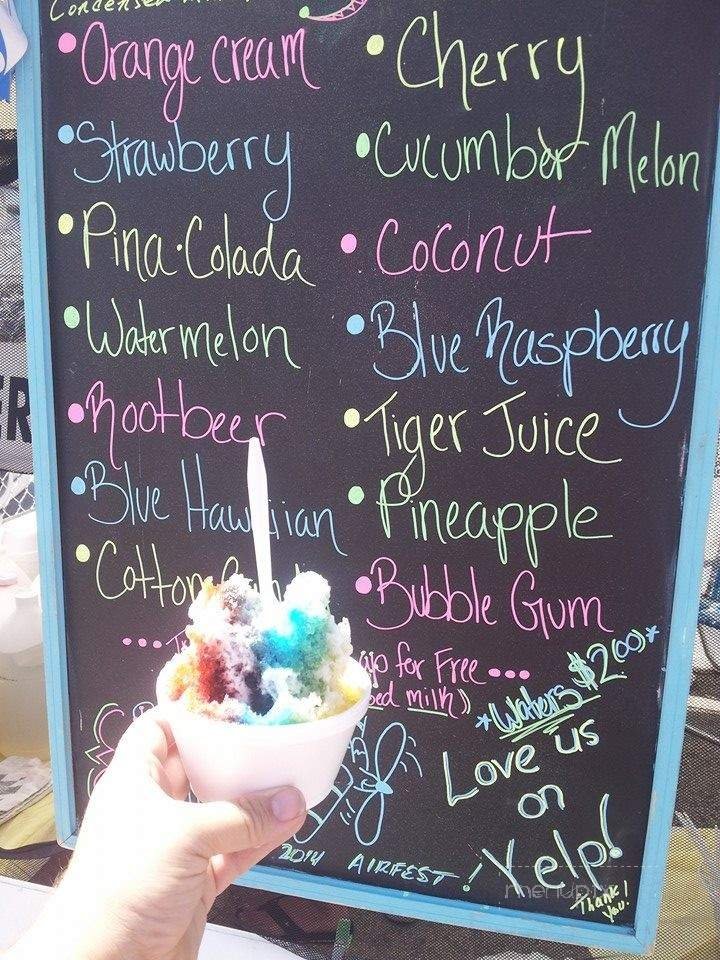 Condensed
• Orange cream
• Cherry
• Strawberry
• Cucumber Melon
• Pina • Colada
• Coconut
• Watermelon
• Blue Raspberry
• Rootbeer
• Tiger Juice
• Blue Hawaiian
• Pineapple
• Cotton
• Bubble Gum
for Free...
milk))
*Waters $2(00)*
Love us
on
Yelp!
Thank
you!
2014 AIRFEST!
menupix